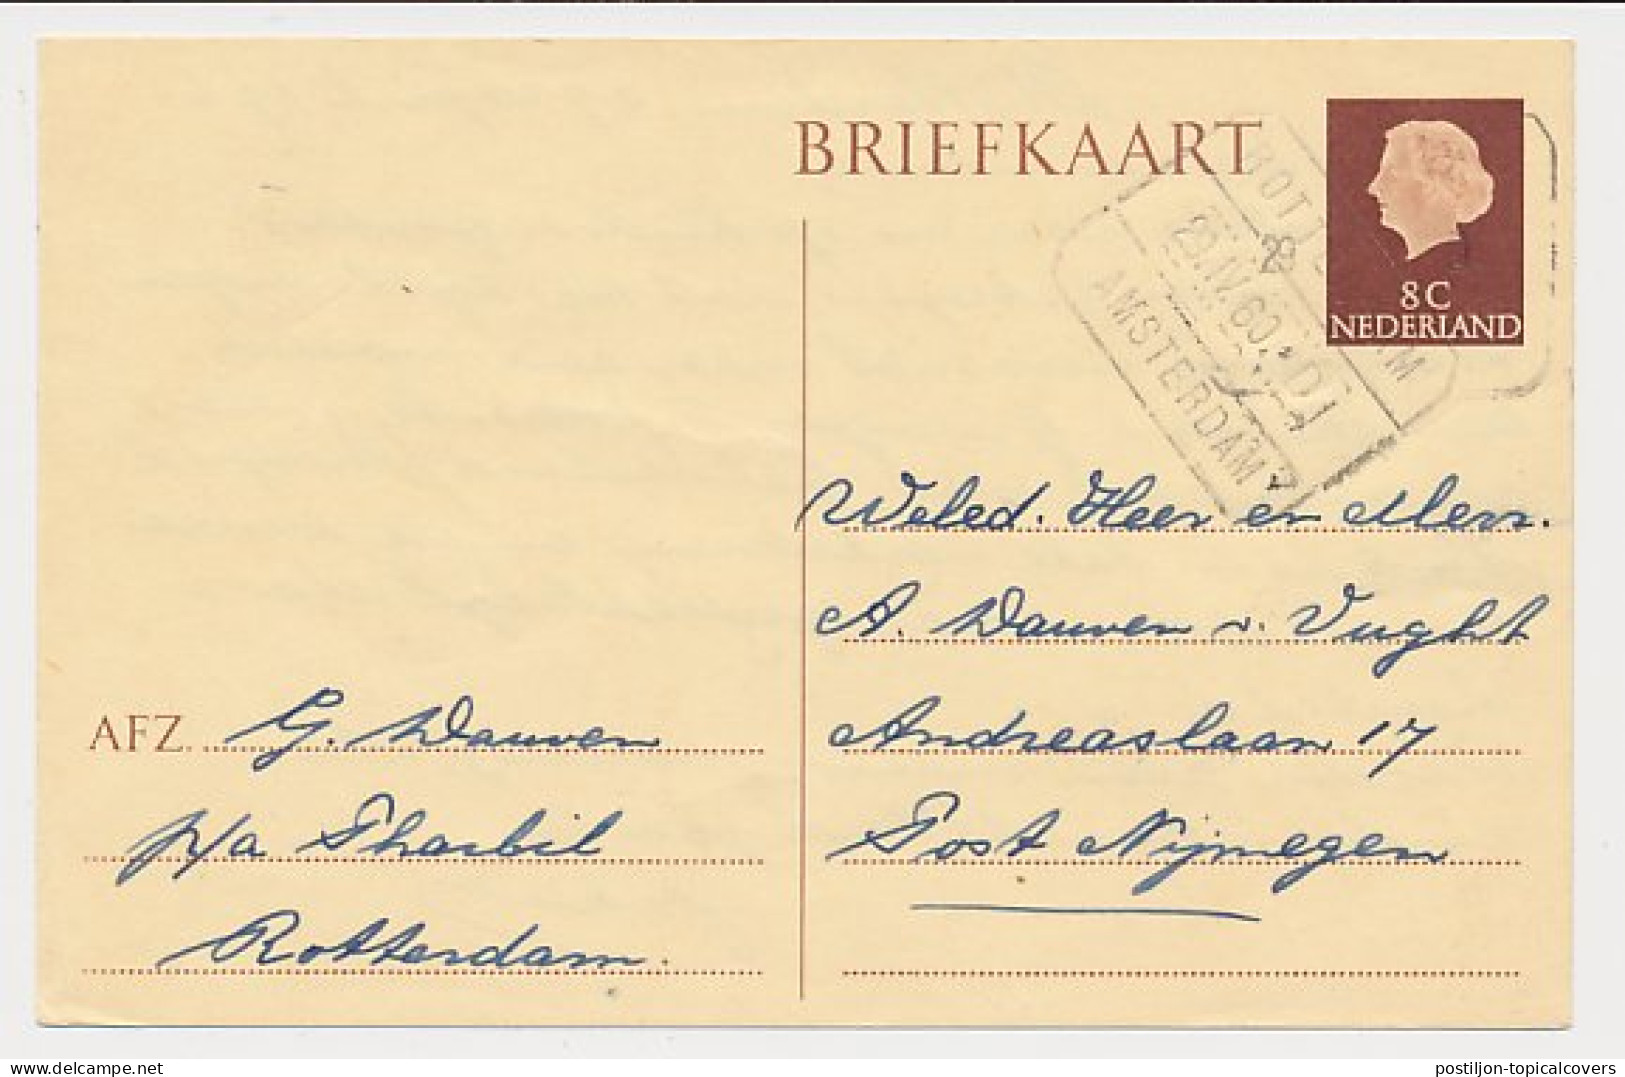 BRIEFKAART
8 C
NEDERLAND
AMSTERDAM
Weled. Heer en Mevr.
A. Dauven v. Vught
Andreaslaan 17
Post Nijmegen
AFZ. G. Dauven
p/a Tharbil
Rotterdam.
delcampe.net
postiljon-topicalcovers